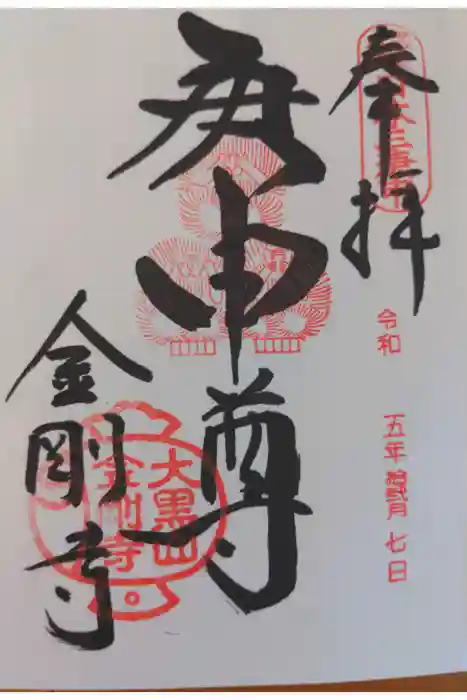 奉拝
令和 五年 七日
庚申尊
大黒山
金剛寺
金剛寺